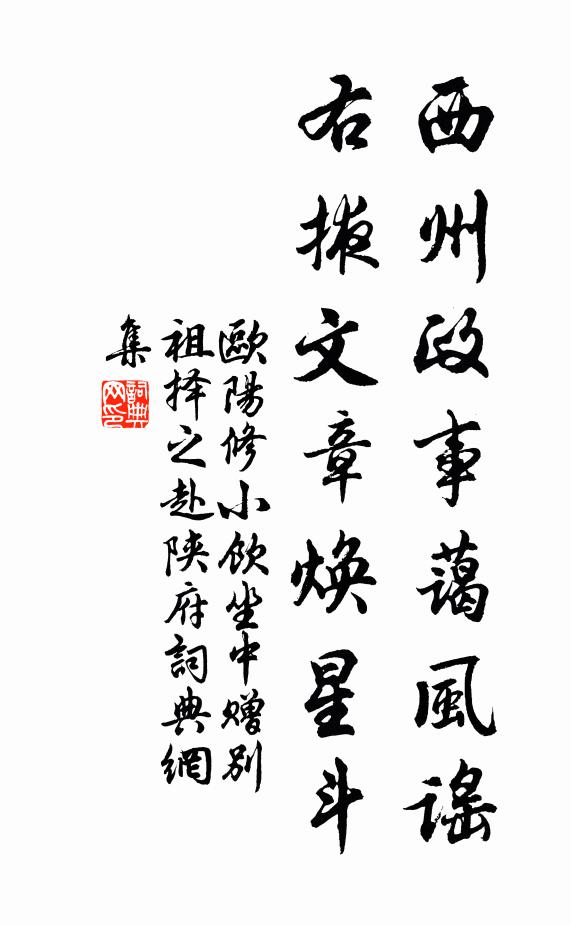 西州政事藹風謠
右掖文章煥星斗
歐陽修小飲坐中贈別
祖择之赴陝府詞典網
集
詞典
网印